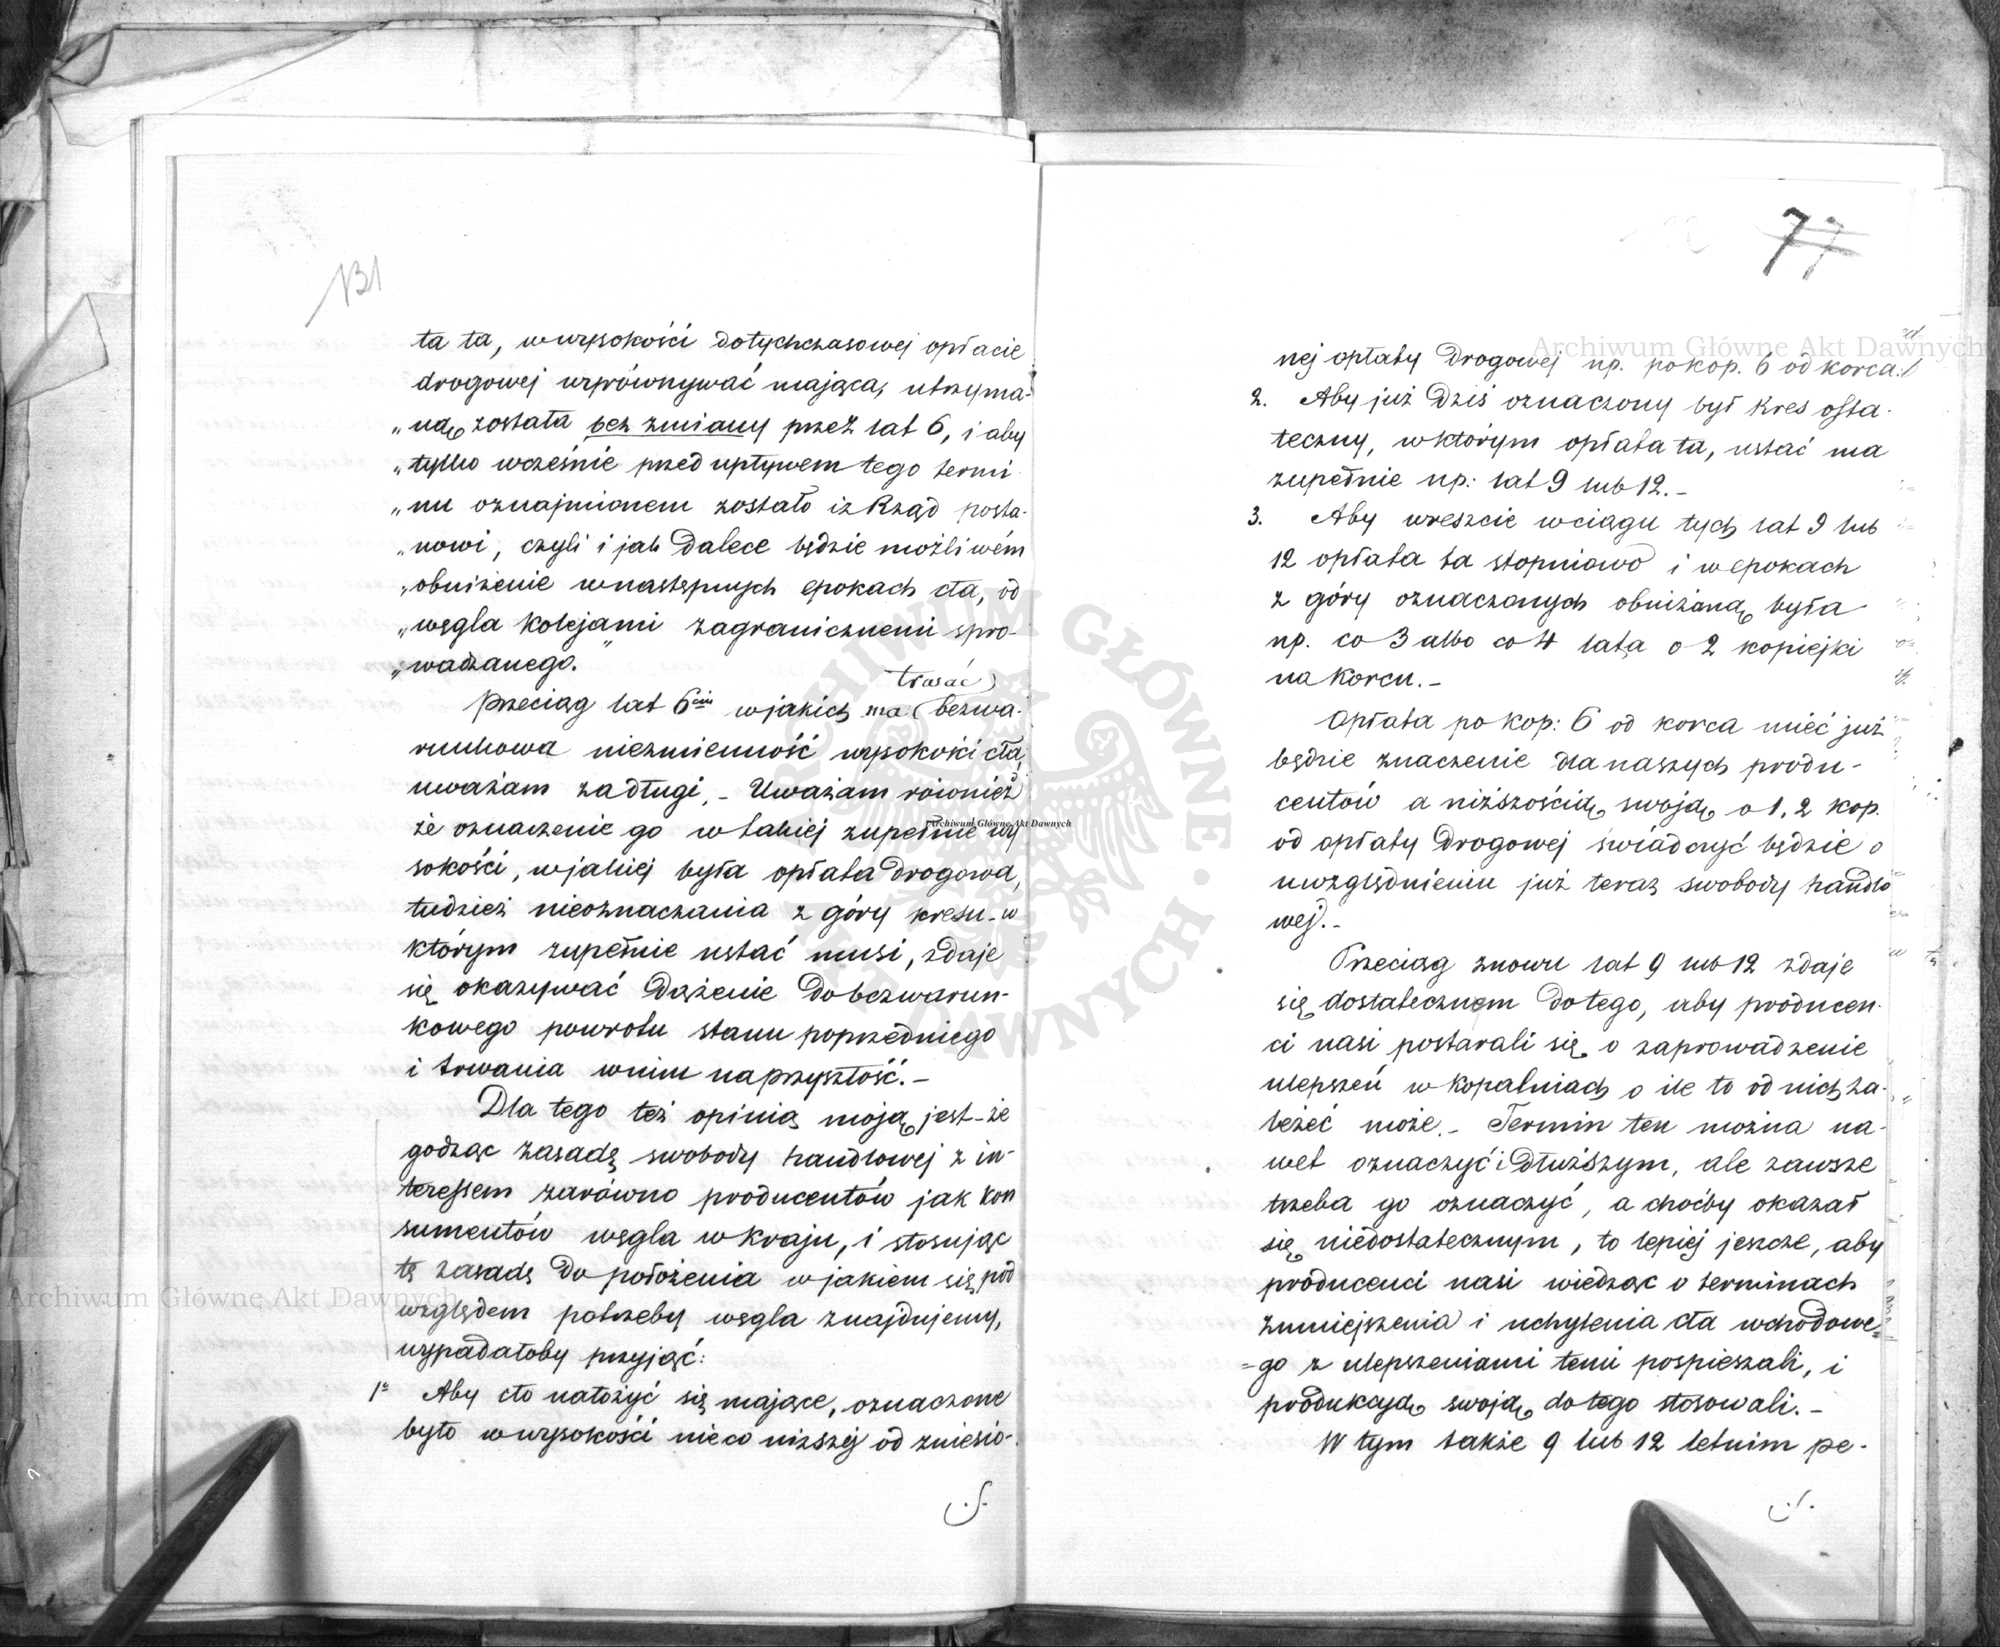 131
ta ta, w wysokości dotychczasowej opłacie
drogowej wyrównywać mająca, utrzyma-
„ną została bez zmiany przez lat 6, i aby
„tylko wcześnie przed upływem tego termi
„nu oznajmionem zostało iż Rząd posta-
„nowi, czyli i jak dalece będzie możliwém
„obniżenie w następnych epokach cła, od
„węgla kolejami zagranicznemi spro-
„wadzanego."
trwać
Przeciąg lat 6ciu w jakich ma ( bezwa-
runkowa niezmienność wysokości cła,
uważam za długi, – Uważam również
że oznaczenie go w takiej zupełnie wy
sokości, w jakiej była opłata drogowa,
tudzież nieoznaczania z góry kresu – w
którym zupełnie ustać musi, zdaje
się okazywać dążenie do bezwarun-
kowego powrotu stanu poprzedniego
i trwania w nim na przyszłość. –
Dla tego też opinią moją jest – że
godząc zasadę swobody handlowej z in-
teressem zarówno producentów jak kon
sumentów węgla w kraju, i stosując
tę zasadę do położenia w jakiem się pod
względem potrzeby węgla znajdujemy,
wypadałoby przyjąć:
1° Aby cło nałożyć się mające, oznaczone
było w wysokości nieco niższej od zniesio-
./.
77
nej opłaty drogowej np. po kop. 6 od korca.
2. Aby już dziś oznaczony był kres osta-
teczny, w którym opłata ta, ustać ma
zupełnie np: lat 9 lub 12. –
3. Aby wreszcie w ciągu tych lat 9 lub
12 opłata ta stopniowo i w epokach
z góry oznaczonych obniżaną była
np. co 3 albo co 4 lata o 2 kopiejki
na korcu. –
Opłata po kop: 6 od korca mieć już
będzie znaczenie dla naszych produ-
centów a niższością swoją o 1,2 kop.
od opłaty drogowej świadczyć będzie o
uwzględnieniu już teraz swobody handlo
wej. –
Przeciąg znowu lat 9 lub 12 zdaje
się dostatecznem do tego, aby producen-
ci nasi postarali się o zaprowadzenie
ulepszeń w kopalniach o ile to od nich za-
leżeć może. – Termin ten można na-
wet oznaczyć i dłuższym, ale zawsze
trzeba go oznaczyć, a choćby okazał
się niedostatecznym, to lepiej jeszcze, aby
producenci nasi wiedząc o terminach
zmniejszenia i uchylenia cła wchodowe=
=go z ulepszeniami temi pospieszali, i
produkcyą swoją do tego stosowali. –
W tym także 9 lub 12 letnim pe-
./.
Archiwum Główne Akt Dawnych
Archiwum Główne Akt Dawnych
Archiwum Główne Akt Dawnych
ARCHIWUM GŁÓWNE AKT DAWNYCH